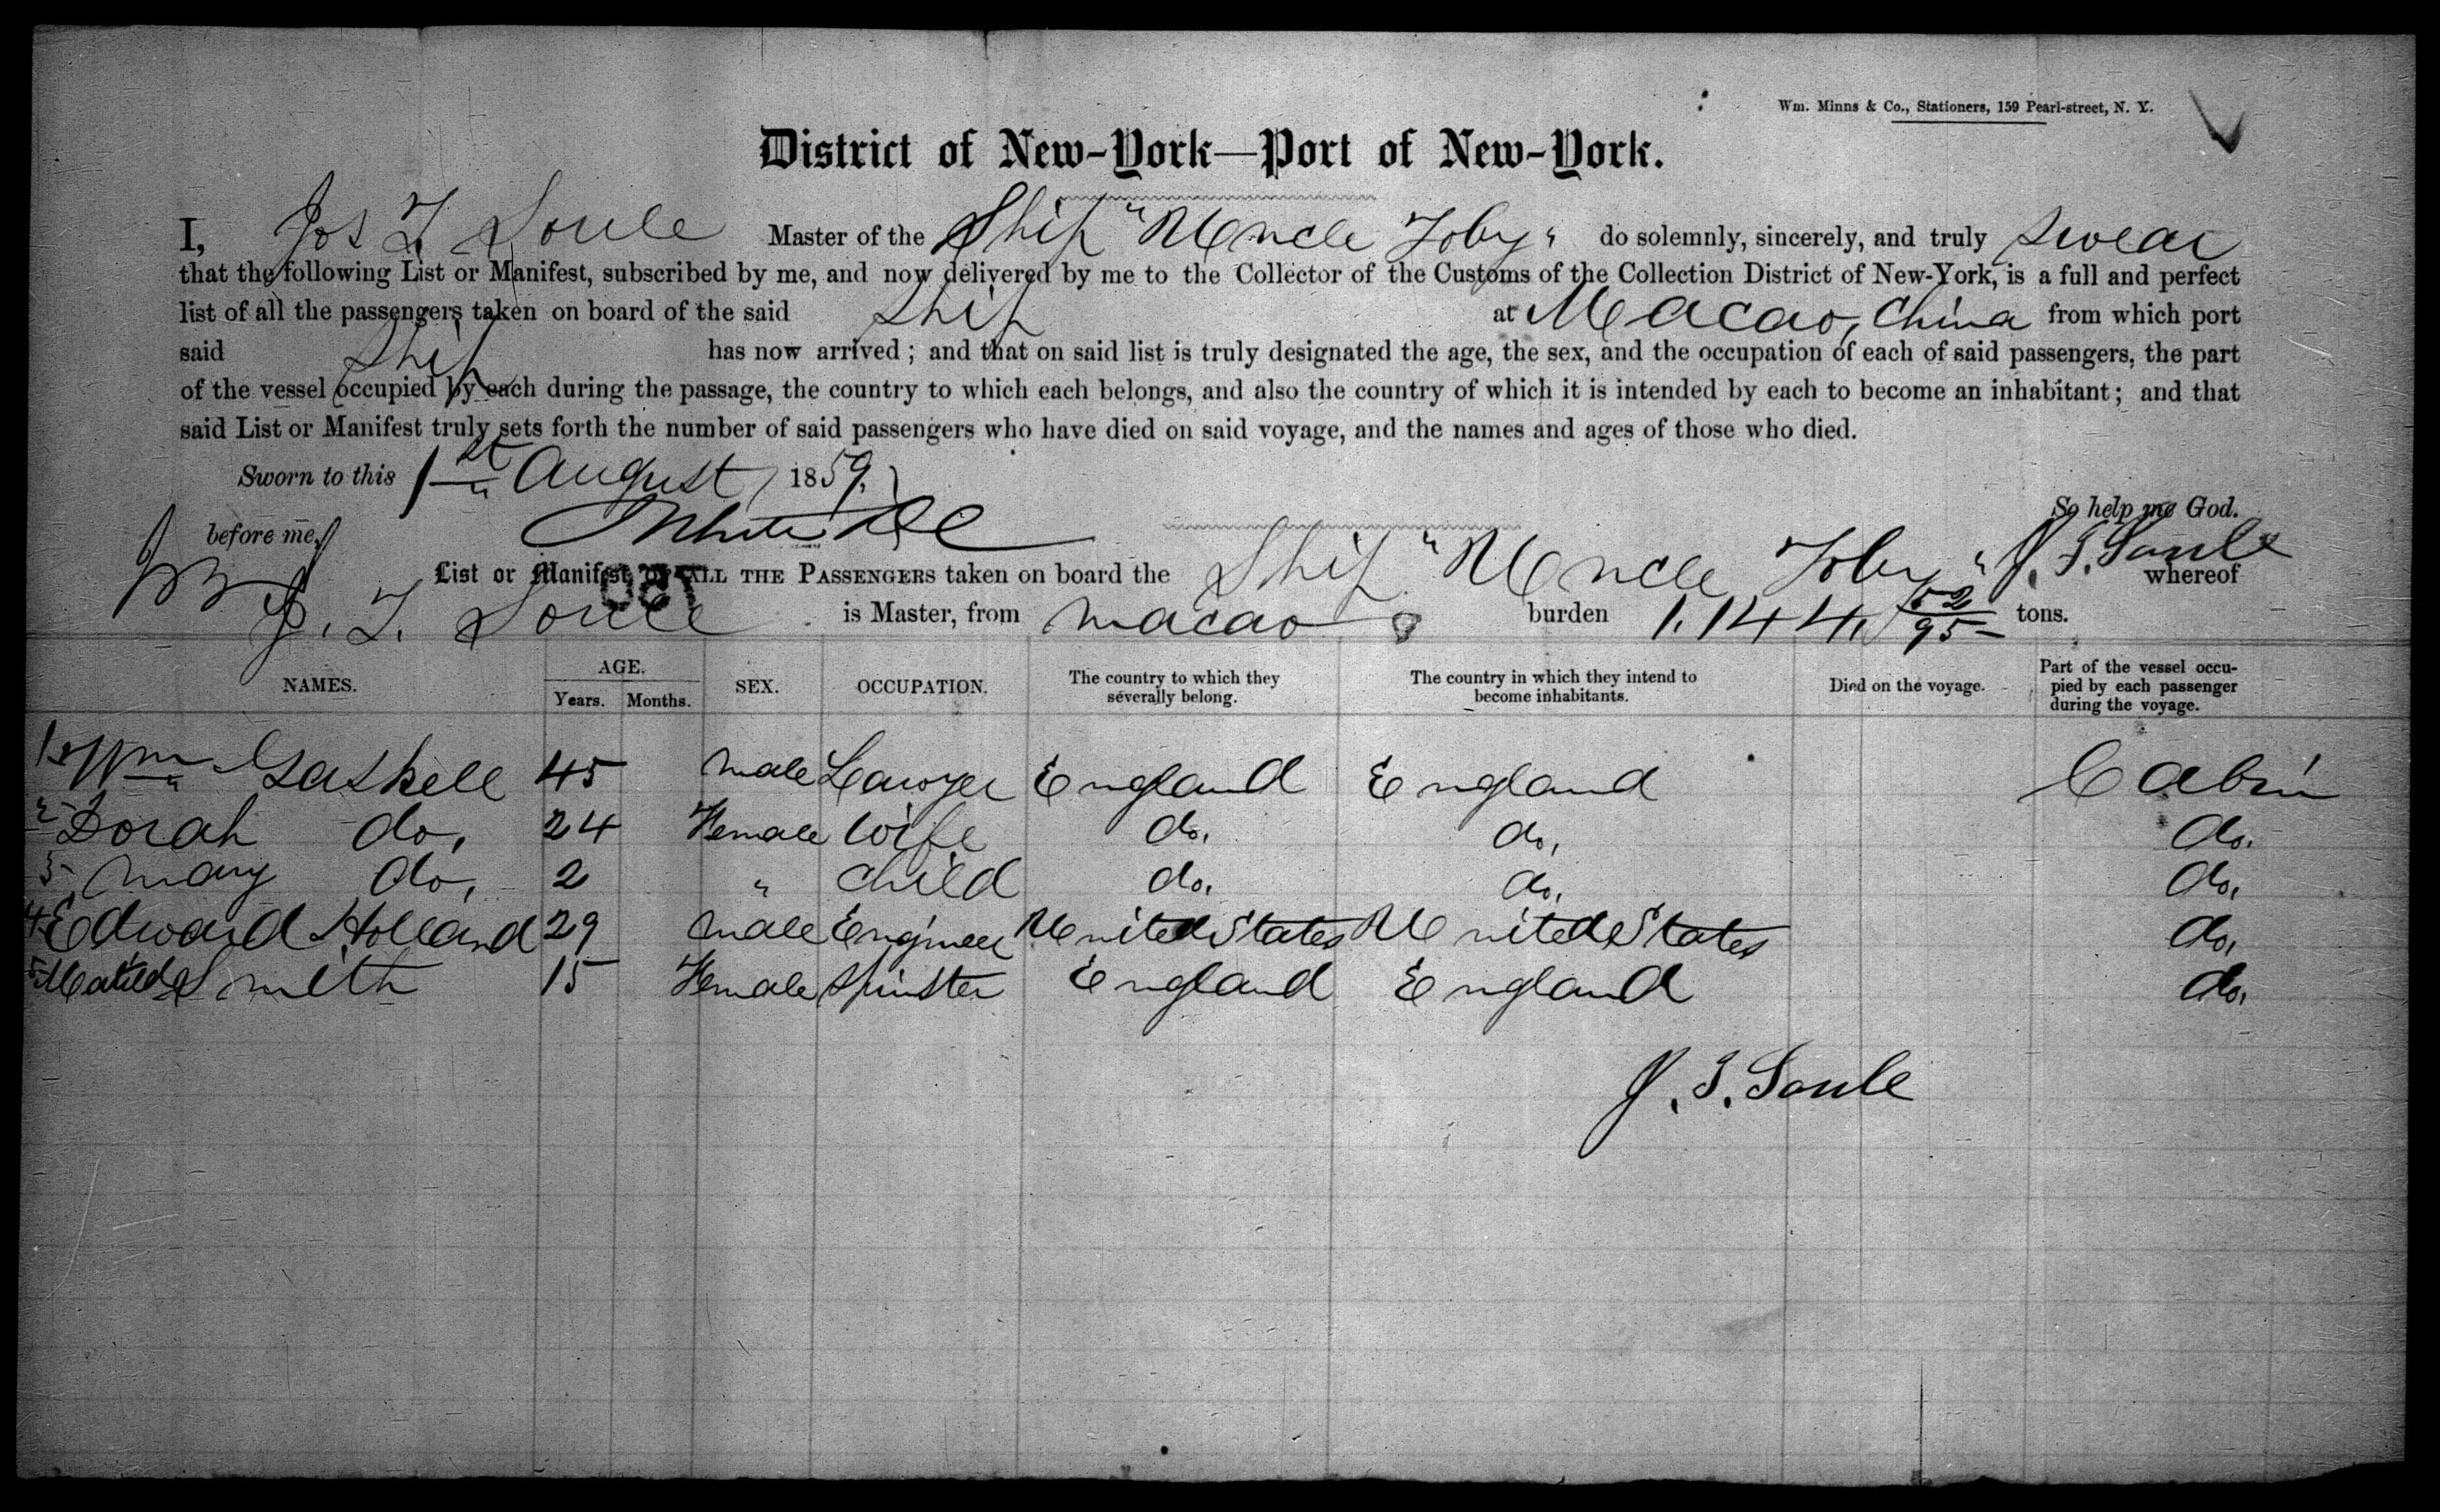 Wm. Minns & Co., Stationers, 159 Pearl-street, N. Y.
District of New-York—Port of New-York.
I, Jos T. Soule Master of the Ship "Uncle Toby" do solemnly, sincerely, and truly swear
that the following List or Manifest, subscribed by me, and now delivered by me to the Collector of the Customs of the Collection District of New-York, is a full and perfect
list of all the passengers taken on board of the said Ship at Macao, China from which port
said Ship has now arrived; and that on said list is truly designated the age, the sex, and the occupation of each of said passengers, the part
of the vessel occupied by each during the passage, the country to which each belongs, and also the country of which it is intended by each to become an inhabitant; and that
said List or Manifest truly sets forth the number of said passengers who have died on said voyage, and the names and ages of those who died.
Sworn to this 1st August, 1859.
So help me God.
before me,
J. T. Soule
List or Manifest of ALL THE PASSENGERS taken on board the Ship "Uncle Toby" whereof
J. T. Soule is Master, from Macao burden 1.144. 52/95 tons.
NAMES. AGE. Years. Months. SEX. OCCUPATION. The country to which they severally belong. The country in which they intend to become inhabitants. Died on the voyage. Part of the vessel occupied by each passenger during the voyage.
1 Wm Gaskell 45 male Lawyer England England Cabin
2 Dorah do. 24 Female Wife do. do. do.
3 Mary do. 2 " Child do. do. do.
4 Edward Holland 29 male Engineer United States United States do.
5 Matilda Smith 15 Female Spinster England England do.
J. T. Soule